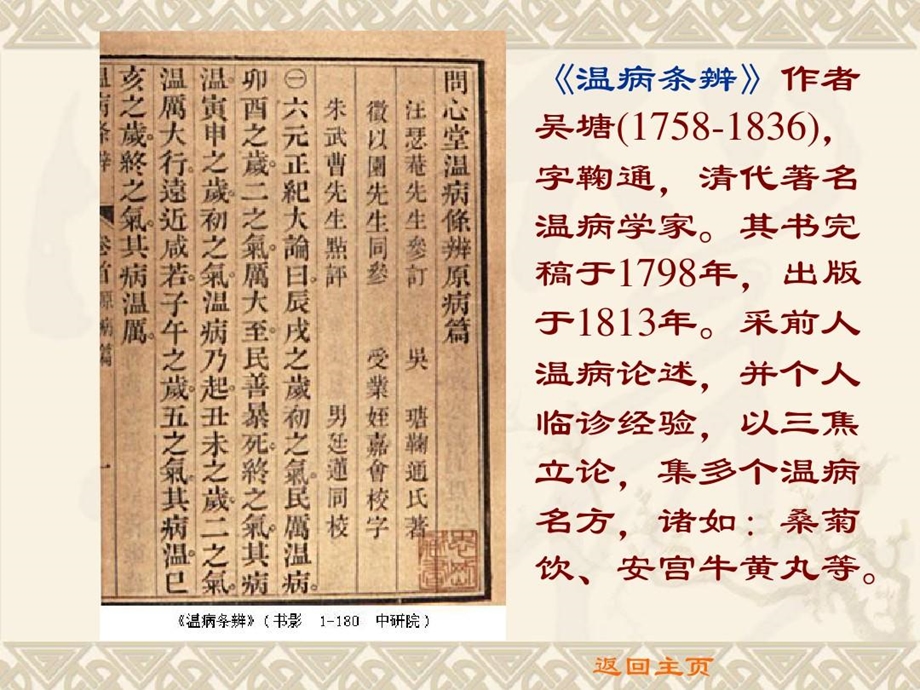 問心堂溫病條辨原病篇
汪瑟菴先生參訂　吳　瑭鞠通氏著
徵以園先生同參　受業姪嘉會校字
朱武曹先生點評　男廷蓮同校
㊀六元正紀大論曰辰戌之歲初之氣民厲溫病。
卯酉之歲二之氣厲大至民善暴死終之氣其病
溫寅申之歲初之氣溫病乃起丑未之歲二之氣。
溫厲大行遠近咸若子午之歲五之氣其病溫巳
亥之歲終之氣其病溫厲。
溫病條辨　卷首原病篇　一
《温病条辨》(书影　1-180　中研院)
《温病条辨》作者
吴塘(1758-1836)，
字鞠通，清代著名
温病学家。其书完
稿于1798年，出版
于1813年。采前人
温病论述，并个人
临诊经验，以三焦
立论，集多个温病
名方，诸如：桑菊
饮、安宫牛黄丸等。
返回主页